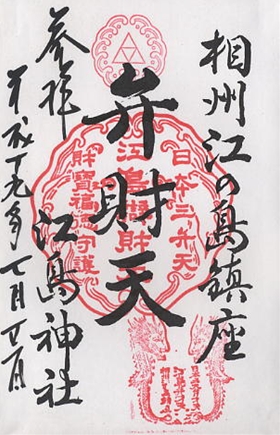 相州江の島鎮座
弁財天
江島神社
参拝
平成十九年七月廿一日
日本三弁天
江島弁財天
財寶福徳守護